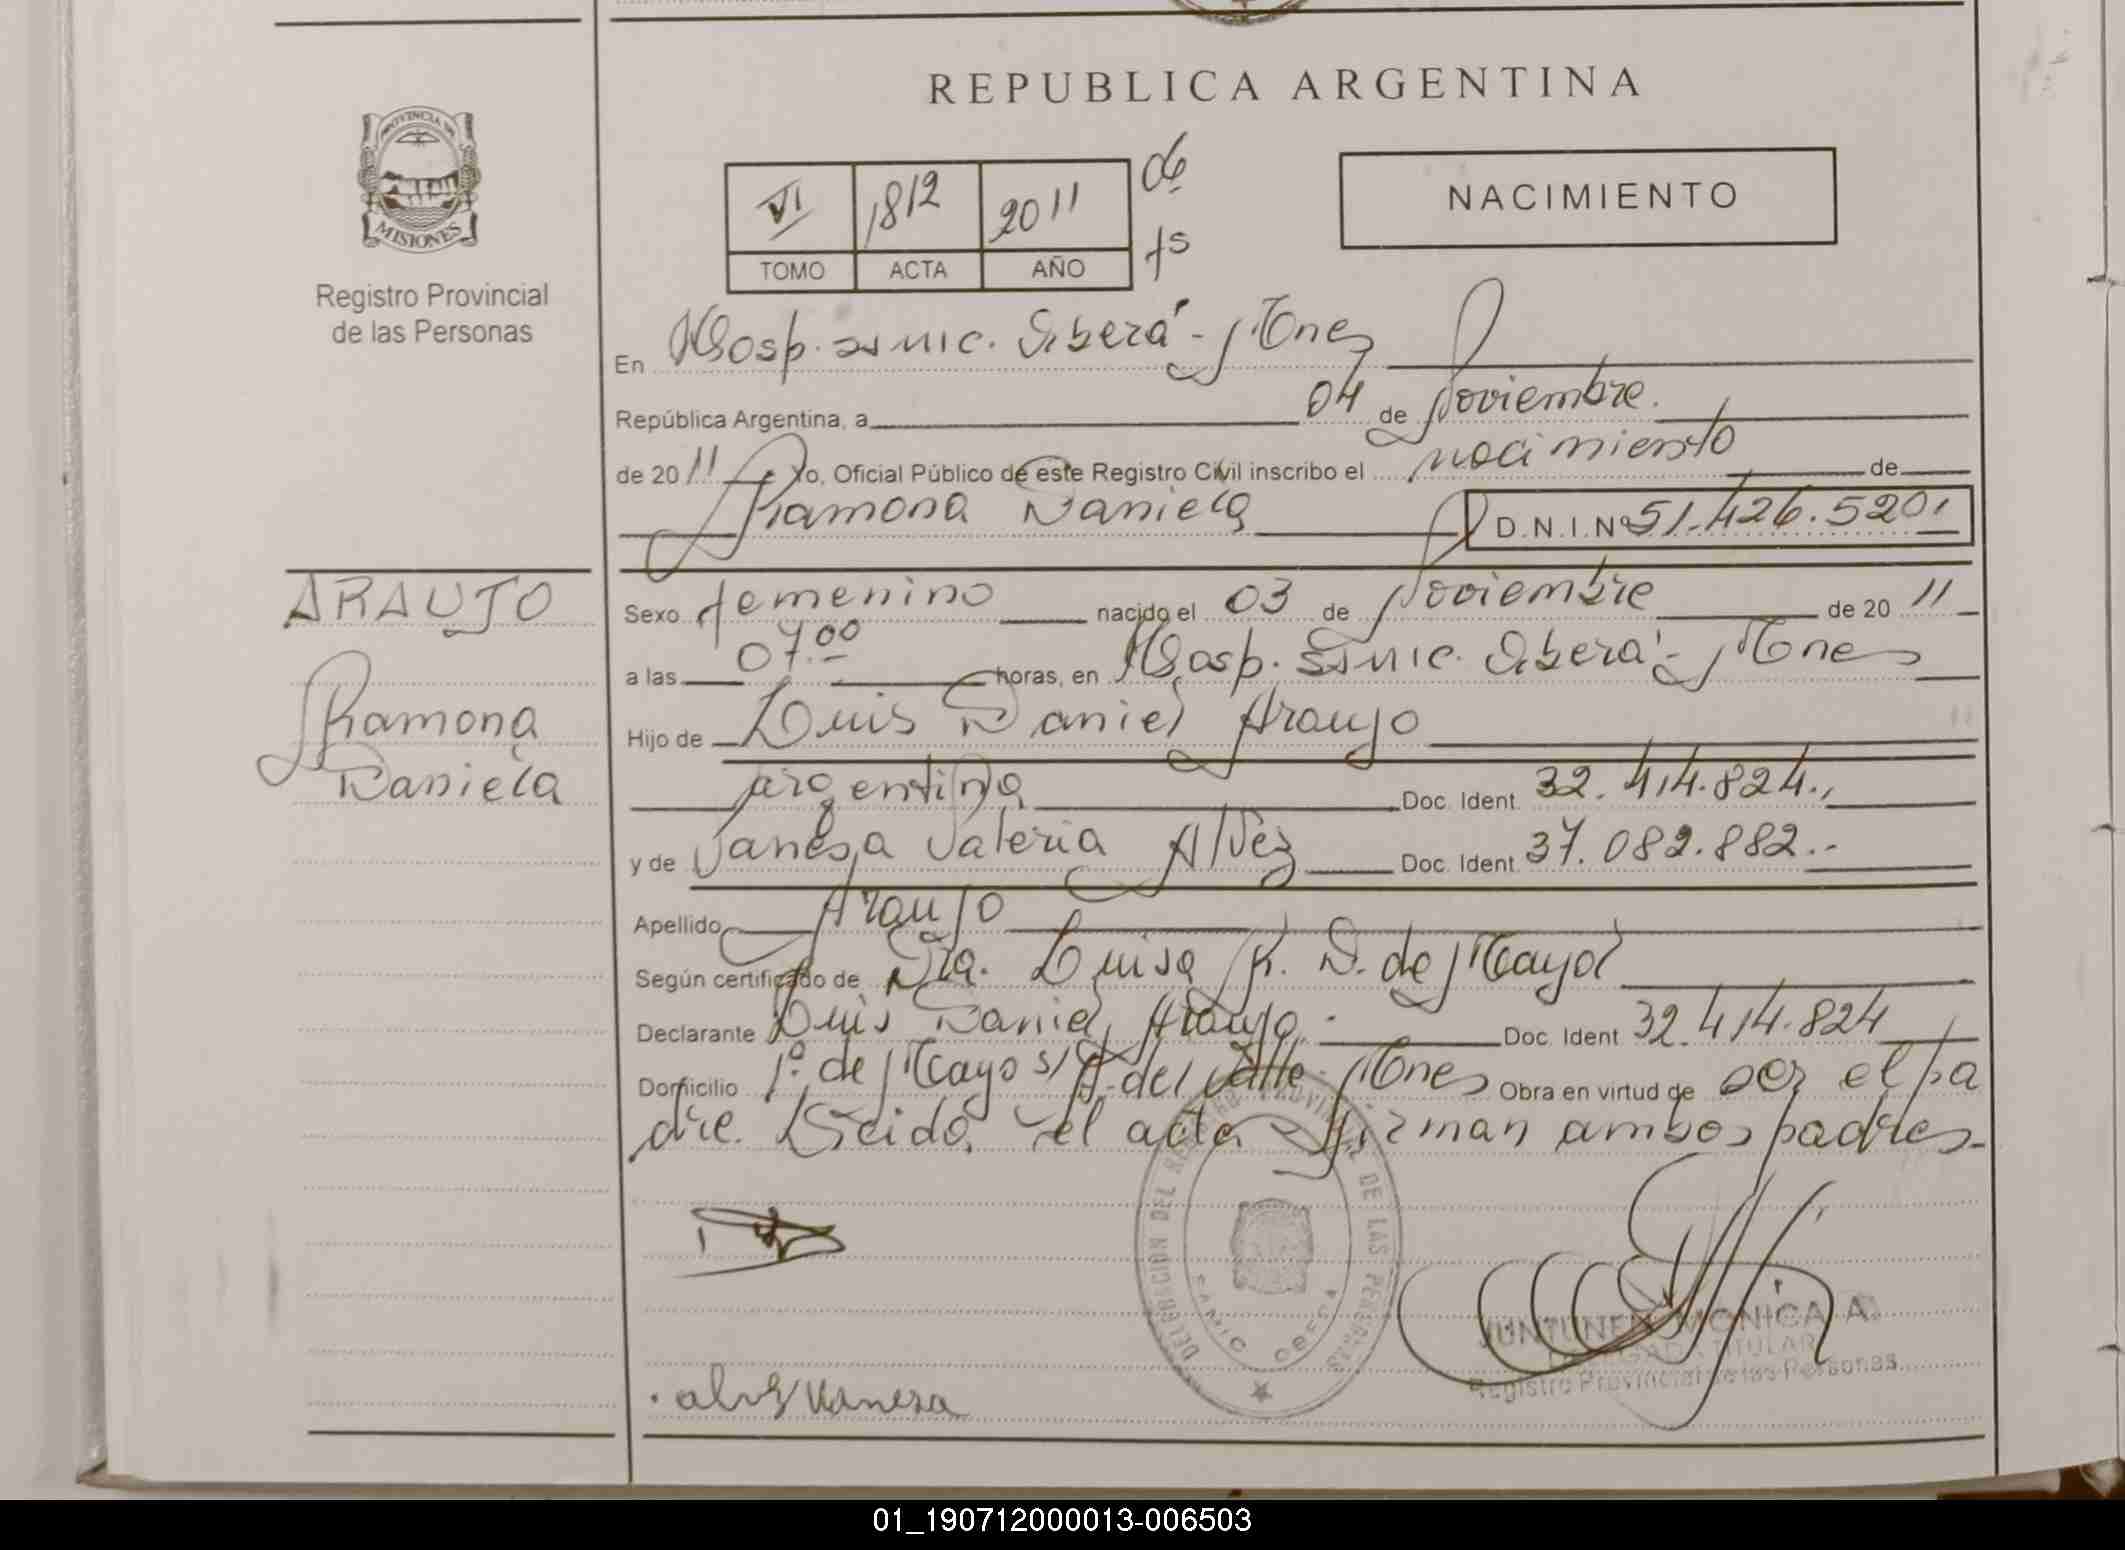 REPUBLICA ARGENTINA
PROVINCIA DE
MISIONES
Registro Provincial
de las Personas
VI 1812 2011
TOMO ACTA AÑO
NACIMIENTO
En Hosp. Oberá - Mnes
República Argentina, a 04 de Noviembre.
de 2011 Yo, Oficial Público de este Registro Civil inscribo el nacimiento de
Ramona Daniela D.N.I.Nº 51.426.520
ARAUJO
Ramona
Daniela
Sexo femenino nacido el 03 de Noviembre de 20 11
a las 07.00 horas, en Hosp. Oberá - Mnes
Hijo de Luis Daniel Araujo
argentina Doc. Ident. 32.414.824.
y de Vanesa Valeria Alvez Doc. Ident. 37.082.882.-
Apellido Araujo
Según certificado de Dra. Luisa K. D. de
Declarante Luis Daniel Araujo.- Doc. Ident 32.414.824
Domicilio 1º de Mayo s/ A. del Valle - Mnes Obra en virtud de ser el pa
dre. Leída el acta firman ambos padres.
DELEGACION DEL REGISTRO PROVINCIAL DE LAS PERSONAS
JUNTUNEN MONICA A.
DELEGADA TITULAR
Registro Provincial de las Personas
alvez vanesa
01_190712000013-006503